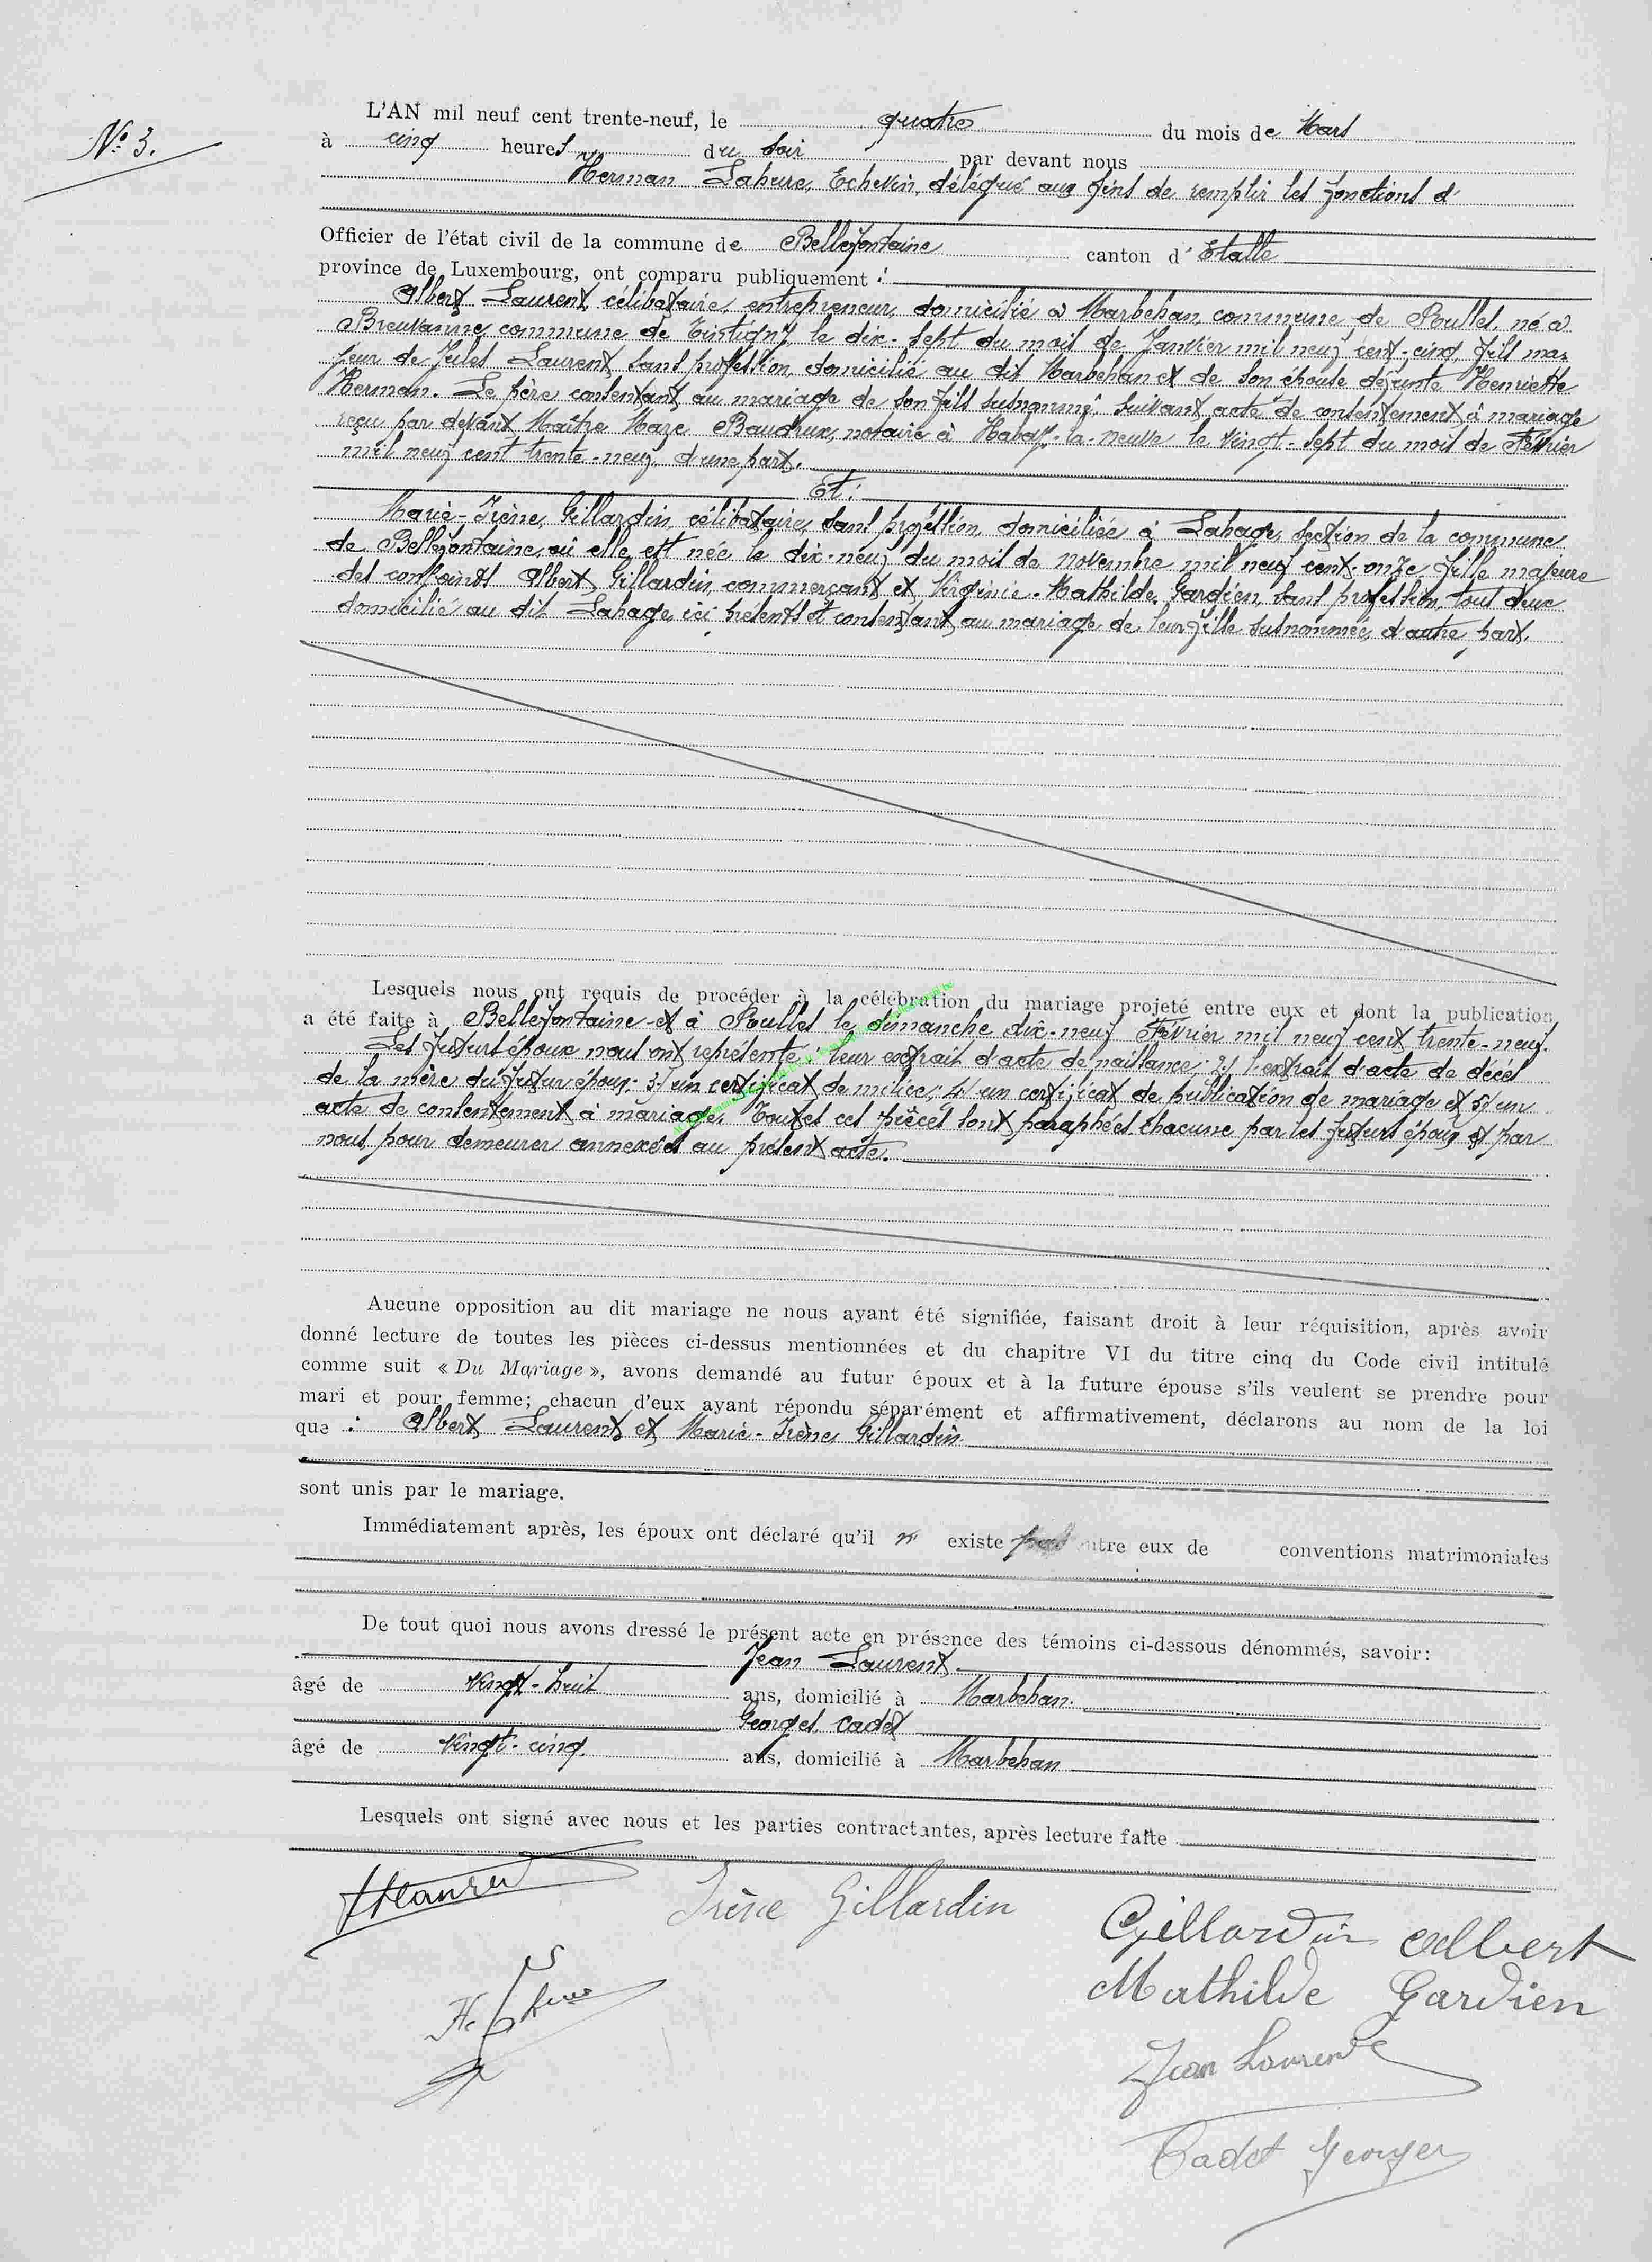 N° 3.
L'AN mil neuf cent trente-neuf, le quatre du mois de Mars
à cinq heures du soir par devant nous
Herman Lahure, Echevin, délégué aux fins de remplir les fonctions d'
Officier de l'état civil de la commune de Bellefontaine canton d'Etalle
province de Luxembourg, ont comparu publiquement :
Albert Laurent, célibataire, entrepreneur, domicilié à Marbehan, commune de Rulles, né à
Breuvanne, commune de Tintigny, le dix-sept du mois de Janvier mil neuf cent-cinq, fils ma-
jeur de Jules Laurent, sans profession, domicilié au dit Marbehan et de son épouse défunte Henriette
Herman. Le père consentant au mariage de son fils susnommé, suivant acte de consentement à mariage
reçu par devant Maître Baudrux, notaire à Habay-la-Neuve le vingt-sept du mois de Février
mil neuf cent trente-neuf, d'une part.
Et :
Marie-Irène Gillardin, célibataire, sans profession, domiciliée à Lahage, section de la commune
de Bellefontaine, où elle est née le dix-neuf du mois de novembre mil neuf cent-onze, fille majeure
des conjoints Albert Gillardin, commerçant et Virginie-Mathilde Gardien, sans profession, tous deux
domicilié au dit Lahage, ici présents et consentant au mariage de leur fille susnommée, d'autre part.
Lesquels nous ont requis de procéder à la célébration du mariage projeté entre eux et dont la publication
a été faite à Bellefontaine et à Rulles le dimanche dix-neuf Février mil neuf cent trente-neuf.
Les futurs époux nous ont représenté : leur extrait d'acte de naissance ; 2) l'extrait d'acte de décès
de la mère du futur époux ; 3) un certificat de milice ; 4) un certificat de publication de mariage et 5) un
acte de consentement à mariage. Toutes ces pièces sont paraphées chacune par les futurs époux et par
nous pour demeurer annexées au présent acte.
Aucune opposition au dit mariage ne nous ayant été signifiée, faisant droit à leur réquisition, après avoir
donné lecture de toutes les pièces ci-dessus mentionnées et du chapitre VI du titre cinq du Code civil intitulé
comme suit « Du Mariage », avons demandé au futur époux et à la future épouse s'ils veulent se prendre pour
mari et pour femme; chacun d'eux ayant répondu séparément et affirmativement, déclarons au nom de la loi
que : Albert Laurent et Marie-Irène Gillardin
sont unis par le mariage.
Immédiatement après, les époux ont déclaré qu'il n'existe pas entre eux de conventions matrimoniales
De tout quoi nous avons dressé le présent acte en présence des témoins ci-dessous dénommés, savoir:
Jean Laurent
âgé de vingt-huit ans, domicilié à Marbehan.
Georges Cadet
âgé de vingt-cinq ans, domicilié à Marbehan
Lesquels ont signé avec nous et les parties contractantes, après lecture faite
Irène Gillardin
Gillardin Albert
Mathilde Gardien
Jean Laurent
Cadet Georges